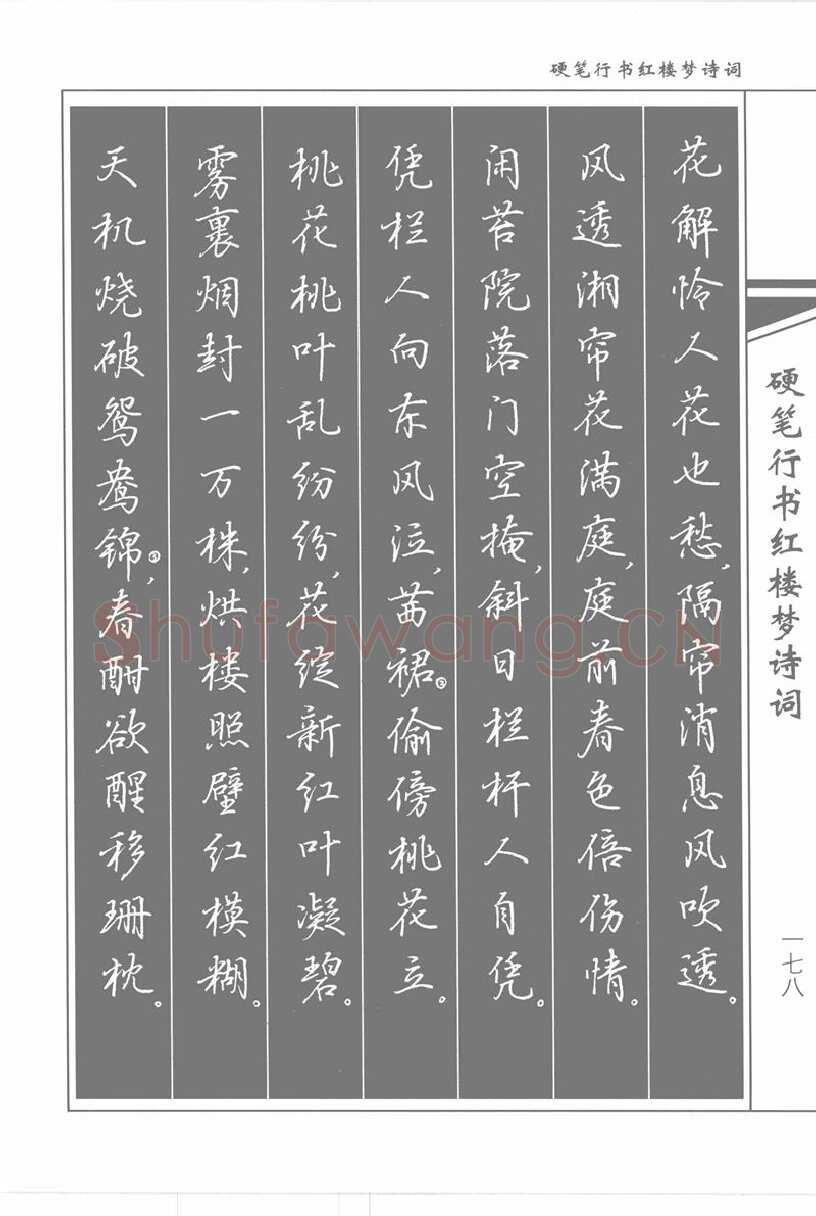 硬笔行书红楼梦诗词
花解怜人花也愁,隔帘消息风吹透。
风透湘帘花满庭,庭前春色倍伤情。
闲苔院落门空掩,斜日栏杆人自凭。
凭栏人向东风泣,茜裙②偷傍桃花立。
桃花桃叶乱纷纷,花绽新红叶凝碧。
雾裹烟封一万株,烘楼照壁红模糊。
天机烧破鸳鸯锦③,春酣欲醒移珊枕。
硬笔行书红楼梦诗词
一七八
Shufawang.CN